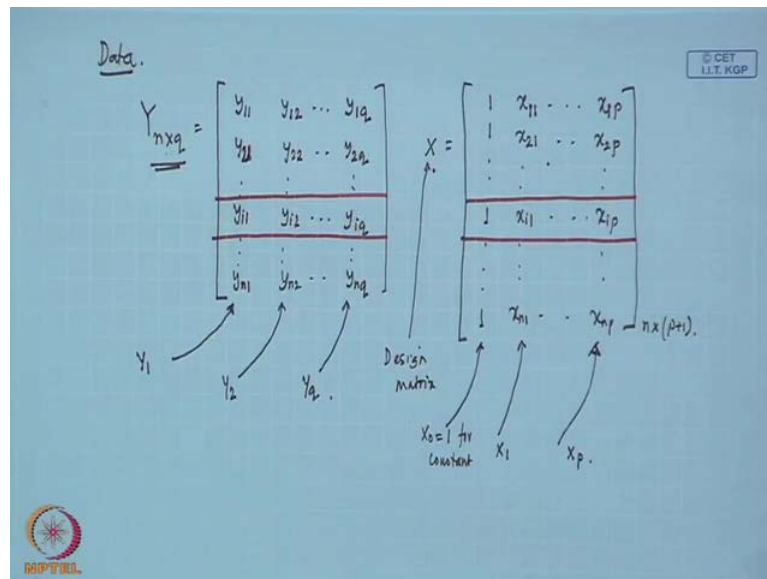 Data.
© CET
I.I.T. KGP
Y n×q = [ y11 y12 ... y1q
y21 y22 .. y2q
: : :
yi1 yi2 ... yiq
: : :
yn1 yn2 .. ynq ]
X = [ 1 x11 . . . x1p
1 x21 . . x2p
: : :
1 xi1 . . . xip
: : :
1 xn1 . . xnp ] n×(p+1).
Y1
Y2
Yq .
Design
matrix
X0=1 for
constant
X1
Xp .
NPTEL